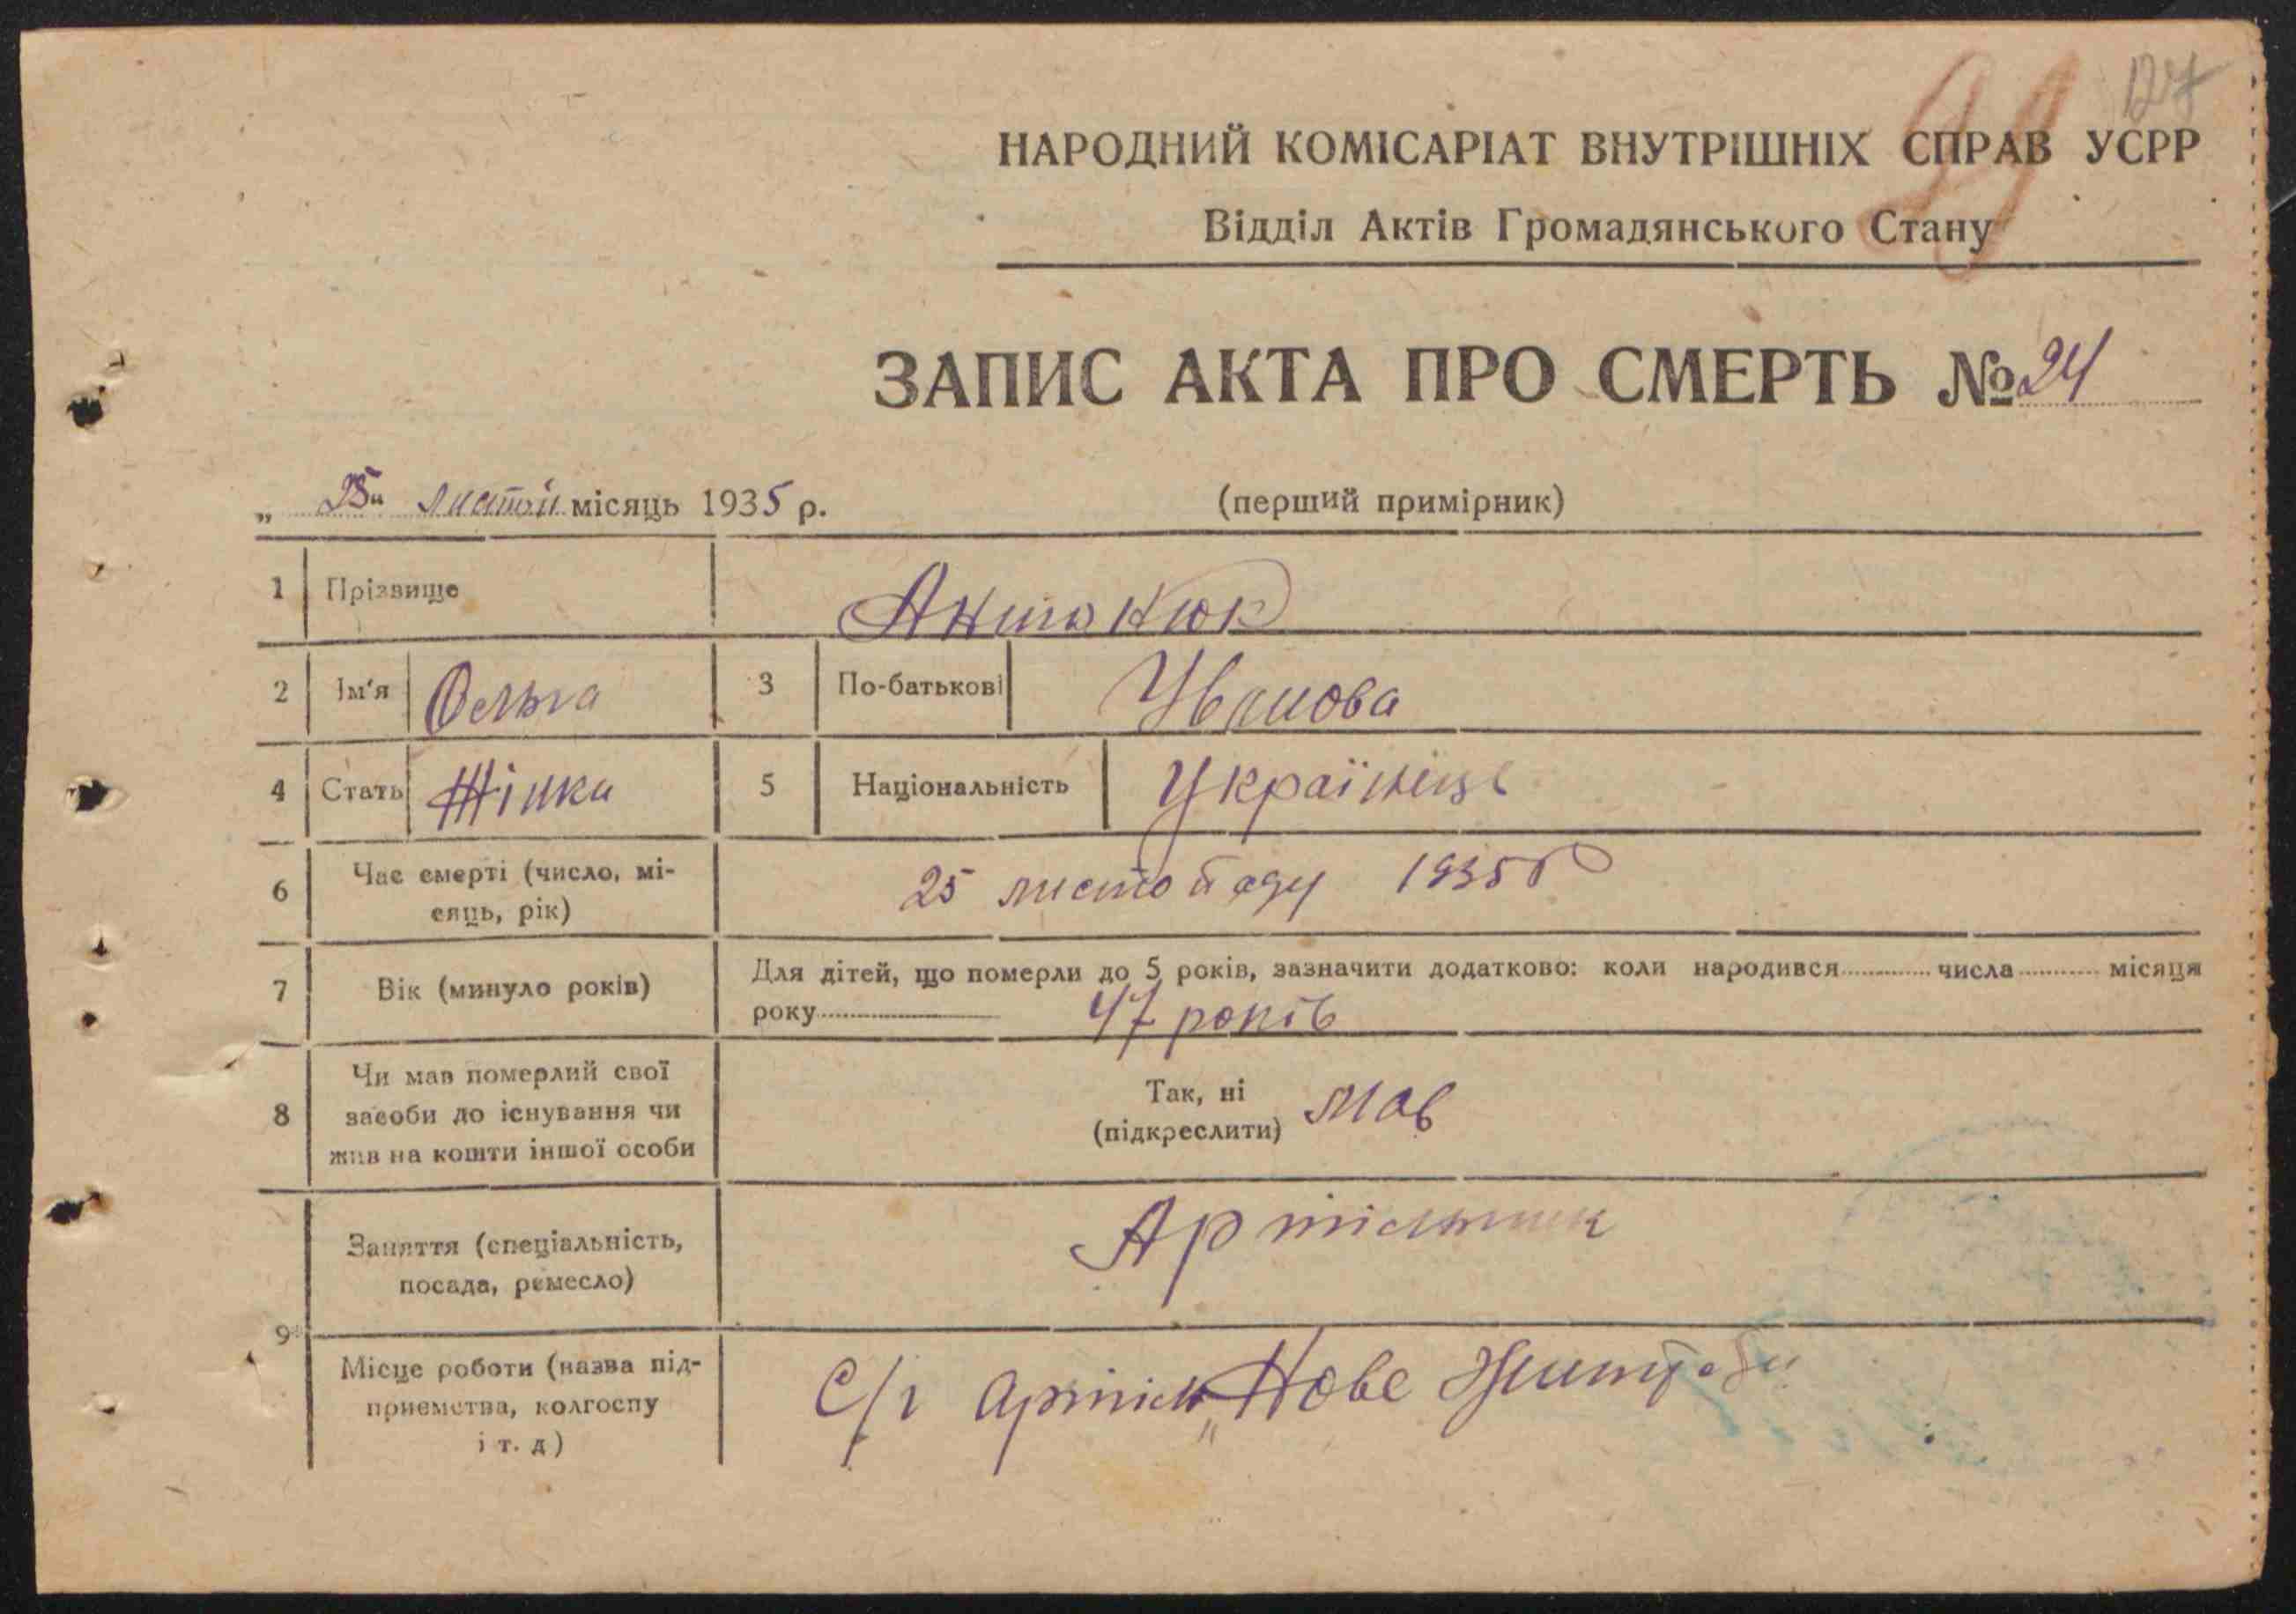 127
29
НАРОДНИЙ КОМІСАРІАТ ВНУТРІШНІХ СПРАВ УСРР
Відділ Актів Громадянського Стану
ЗАПИС АКТА ПРО СМЕРТЬ № 24
„ 25 " листоп місяць 1935 р.
(перший примірник)
1 Прізвище Антонюк
2 Ім'я Ольга 3 По-батькові Іванова
4 Стать Жінка 5 Національність Українець
6 Час смерті (число, мі-
сяць, рік) 25 листопаду 1935 р
7 Вік (минуло років) Для дітей, що померли до 5 років, зазначити додатково: коли народився числа місяця
року 47 років
8 Чи мав померлий свої
засоби до існування чи
жив на кошти іншої особи
Так, ні
(підкреслити) мав
9 Заняття (спеціальність,
посада, ремесло) Артільник
Місце роботи (назва під-
приємства, колгоспу
і т. д)
С/г артіль „Нове